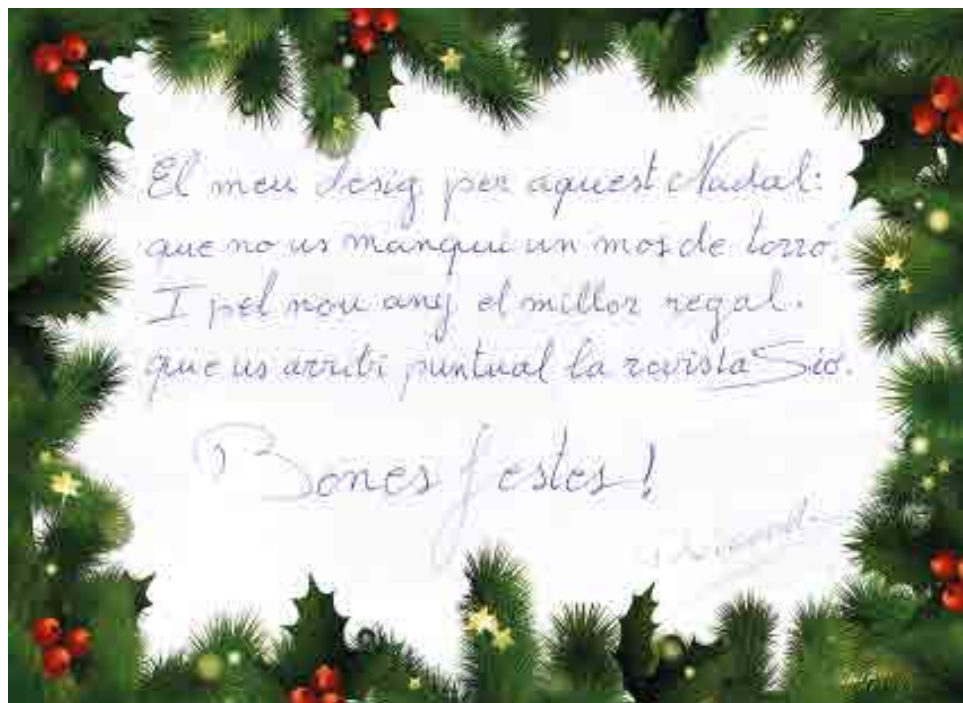 El meu desig per aquest Nadal:
que no us manqui un mos de torró.
I pel nou any el millor regal:
que us arribi puntual la revista Sió.
Bones festes!